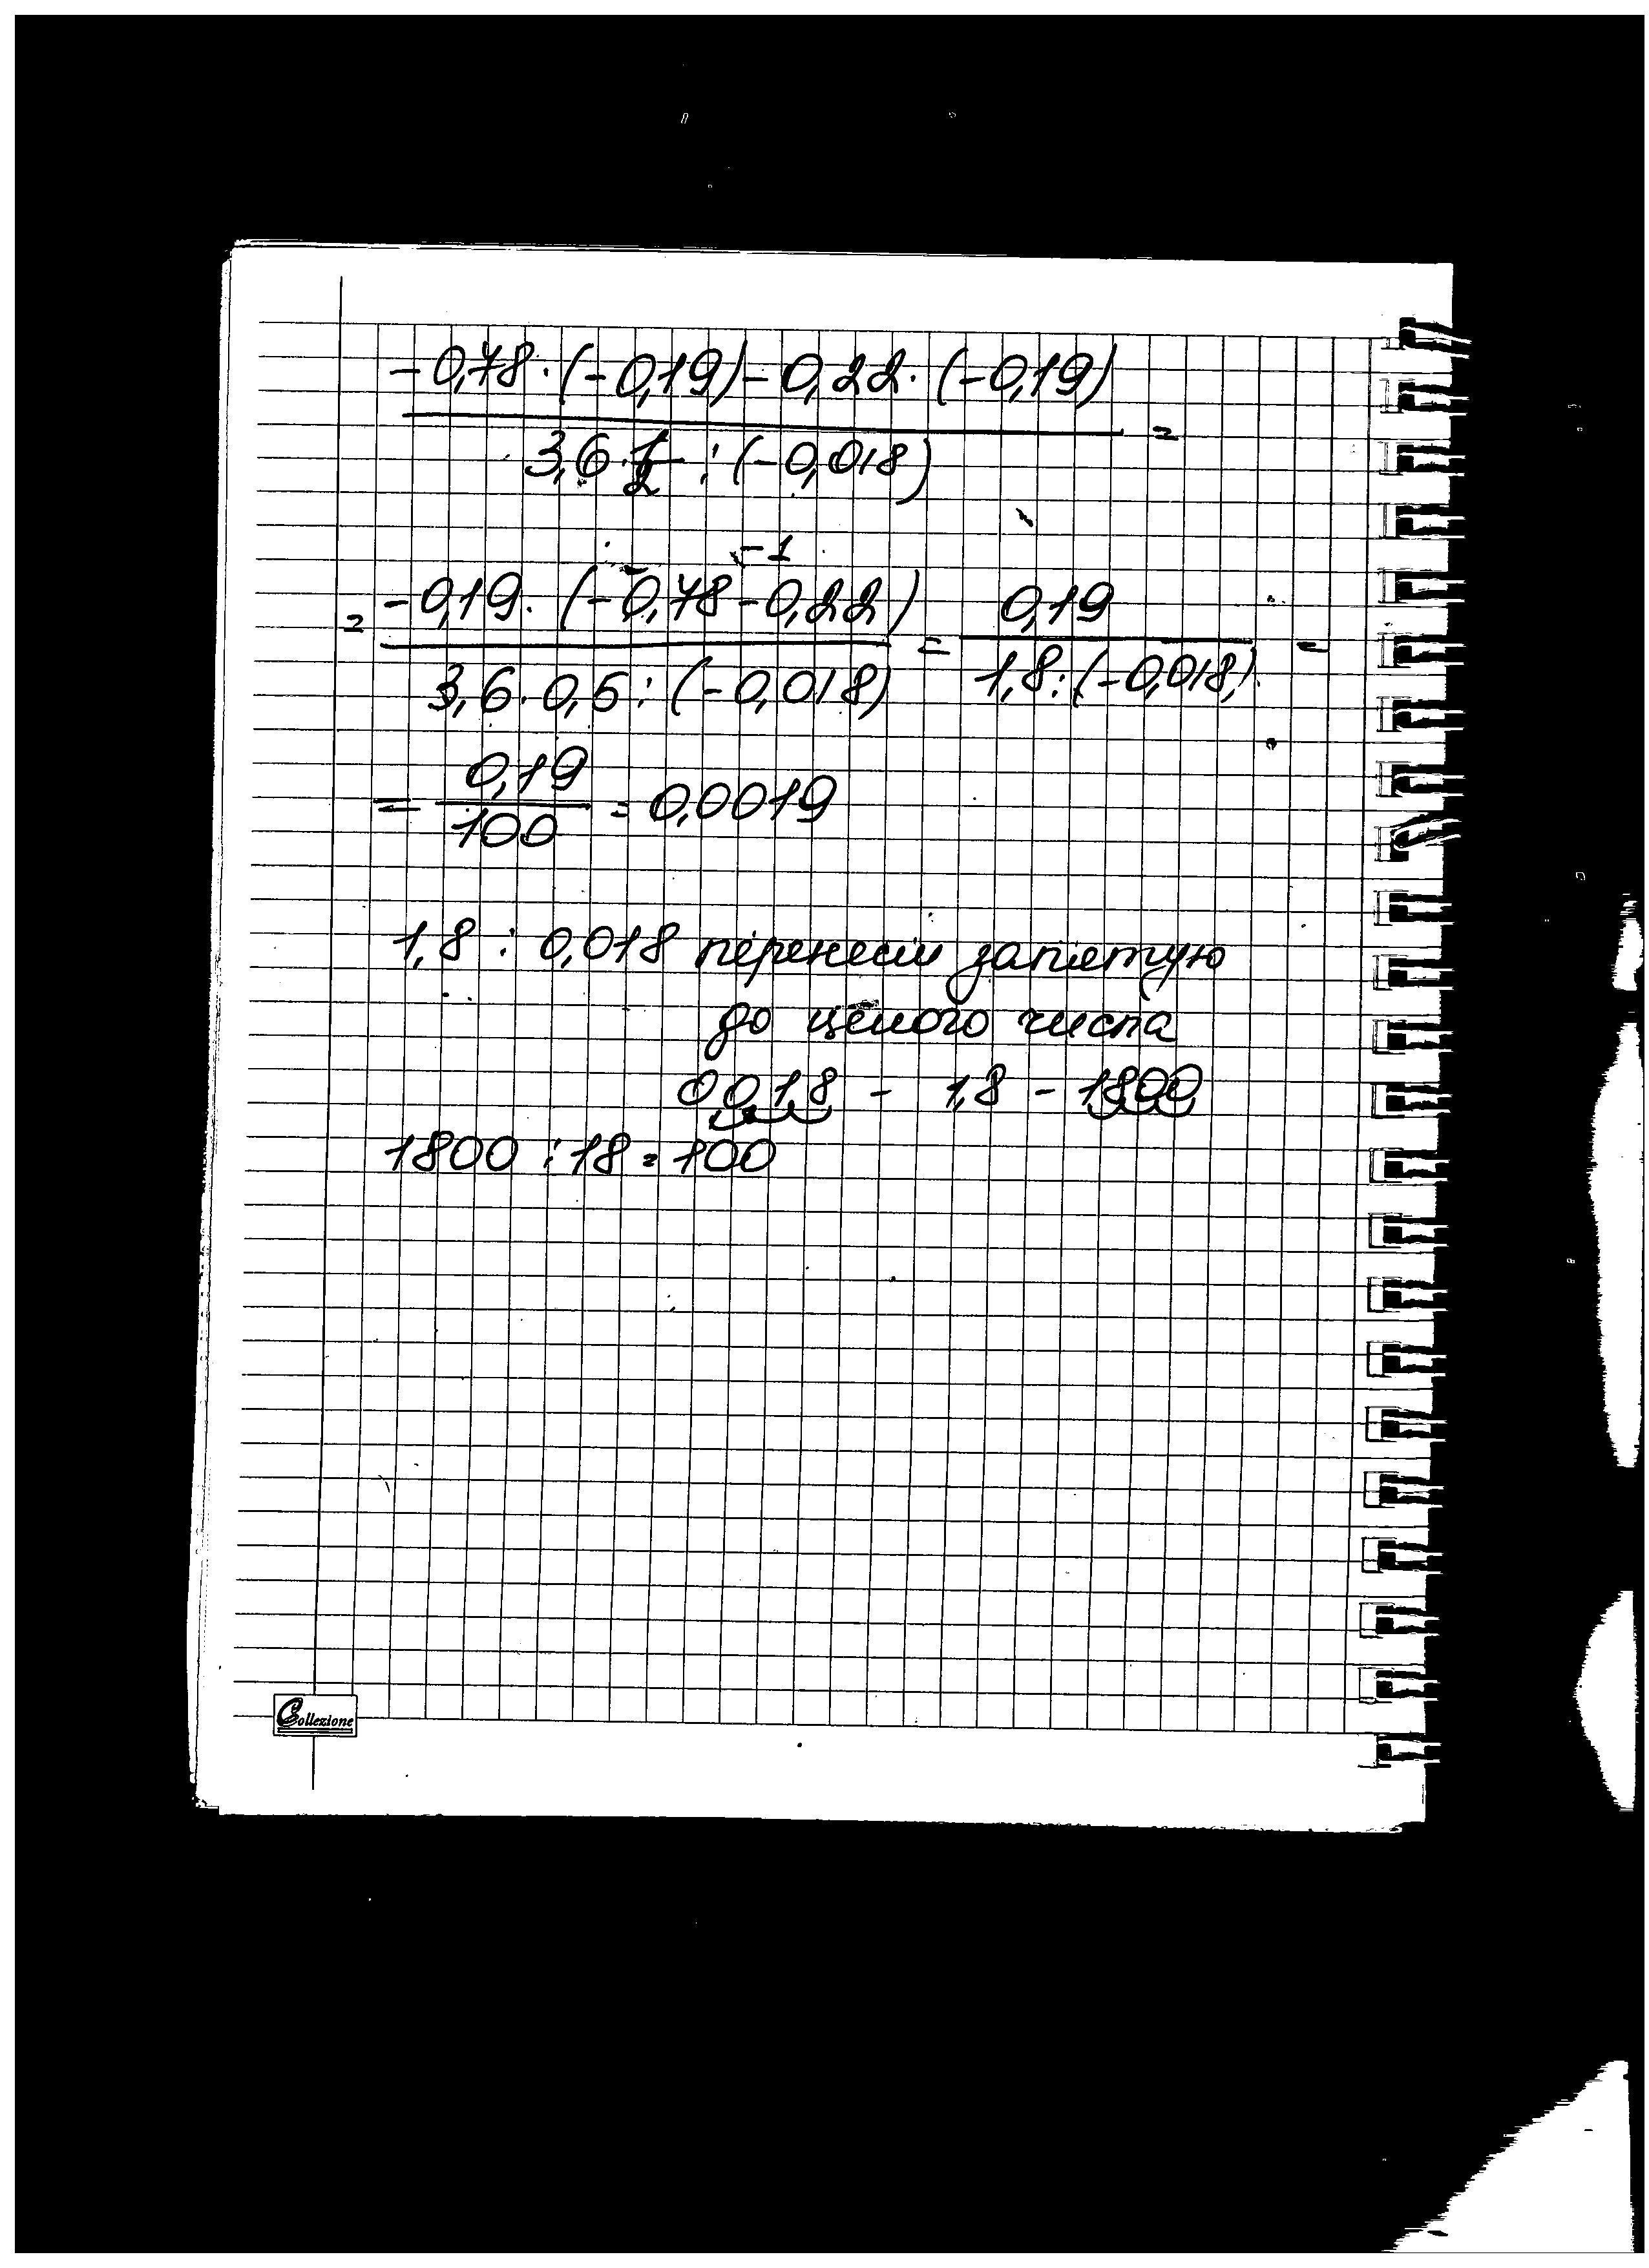 -0,78·(-0,19)-0,22·(-0,19)
3,6·1/2:(-0,018) =
-1
= -0,19·(-0,78-0,22) = 0,19 =
3,6·0,5:(-0,018) 1,8:(-0,018)
= 0,19/100 = 0,0019
1,8 : 0,018 перенесли запятую
до целого числа
00,1,8 - 1,8 - 1800
1800 : 18 = 100
Collezione